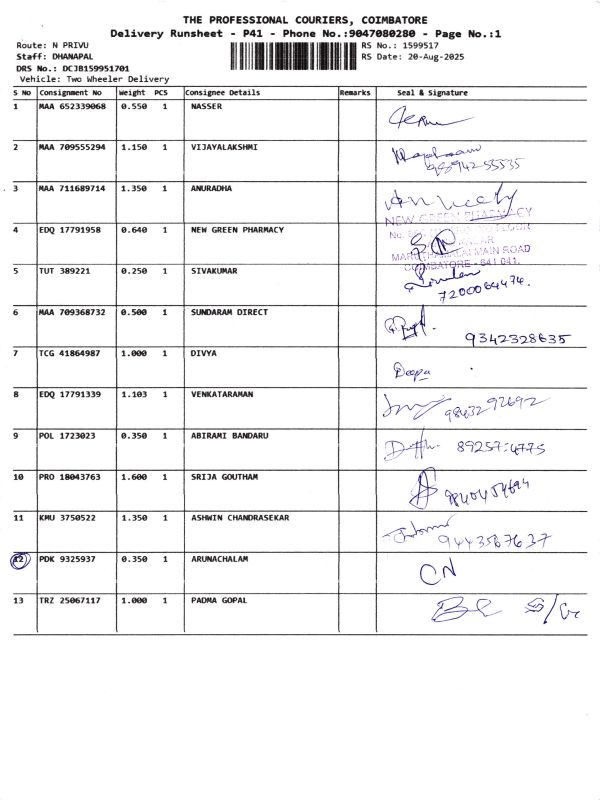 THE PROFESSIONAL COURIERS, COIMBATORE
Delivery Runsheet - P41 - Phone No.:9047080280 - Page No.:1
Route: N PRIVU
RS No.: 1599517
Staff: DHANAPAL
RS Date: 20-Aug-2025
DRS No.: DCJB159951701
Vehicle: Two Wheeler Delivery
S No Consignment No Weight PCS Consignee Details Remarks Seal & Signature
1 MAA 652339068 0.550 1 NASSER
2 MAA 709555294 1.150 1 VIJAYALAKSHMI
3 MAA 711689714 1.350 1 ANURADHA
NEW GREEN PHARMACY
4 EDQ 17791958 0.640 1 NEW GREEN PHARMACY
MAIN ROAD
COIMBATORE - 641 041.
5 TUT 389221 0.250 1 SIVAKUMAR
7200064474.
6 MAA 709368732 0.500 1 SUNDARAM DIRECT
9342328635
7 TCG 41864987 1.000 1 DIVYA
Deepa
8 EDQ 17791339 1.103 1 VENKATARAMAN
9843292692
9 POL 1723023 0.350 1 ABIRAMI BANDARU
10 PRO 18043763 1.600 1 SRIJA GOUTHAM
11 KMU 3750522 1.350 1 ASHWIN CHANDRASEKAR
9443567637
12 PDK 9325937 0.350 1 ARUNACHALAM
CN
13 TRZ 25067117 1.000 1 PADMA GOPAL